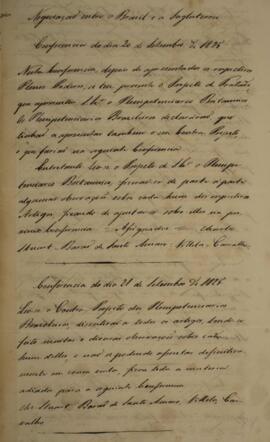 Negociação entre o Brasil e a Inglaterra
Conferencia do dia 20 de Setembro de 1825
Nesta Conferencia, depois de apresentados os respectivos
Plenos Poderes, e ter presente o Projecto de Tratado,
que apresentou o Plenipotenciario Britannico
os Plenipotenciarios Brasileiros declararaõ, que
tinhaõ a apresentar tambem o seu Contra Projecto,
o que fariaõ na seguinte Conferencia
Entretanto leo-se o Projecto do Plenipo-
tenciario Britannico, fizeraõ-se de parte a parte
algumas observações sobre cada hum dos respectivos
Artigos, ficando de ajustar sobre elles na pro-
xima Conferencia Assignados Charles
Stuart, Baraõ de Santo Amaro, Villela, Carvalho
Conferencia do dia 21 de Setembro de 1825
Leo-se o Contra Projecto dos Plenipotenciarios
Brasileiros, discutiraõ-se todos os artigos, tendo-se
feito muitas e diversas observações sobre cada
hum delles e naõ se podendo assentar definitiva-
mente em couza, ficou toda a materia
adiada para a seguinte Conferencia
Stuart, Baraõ de Santo Amaro, Villela, Car-
valho